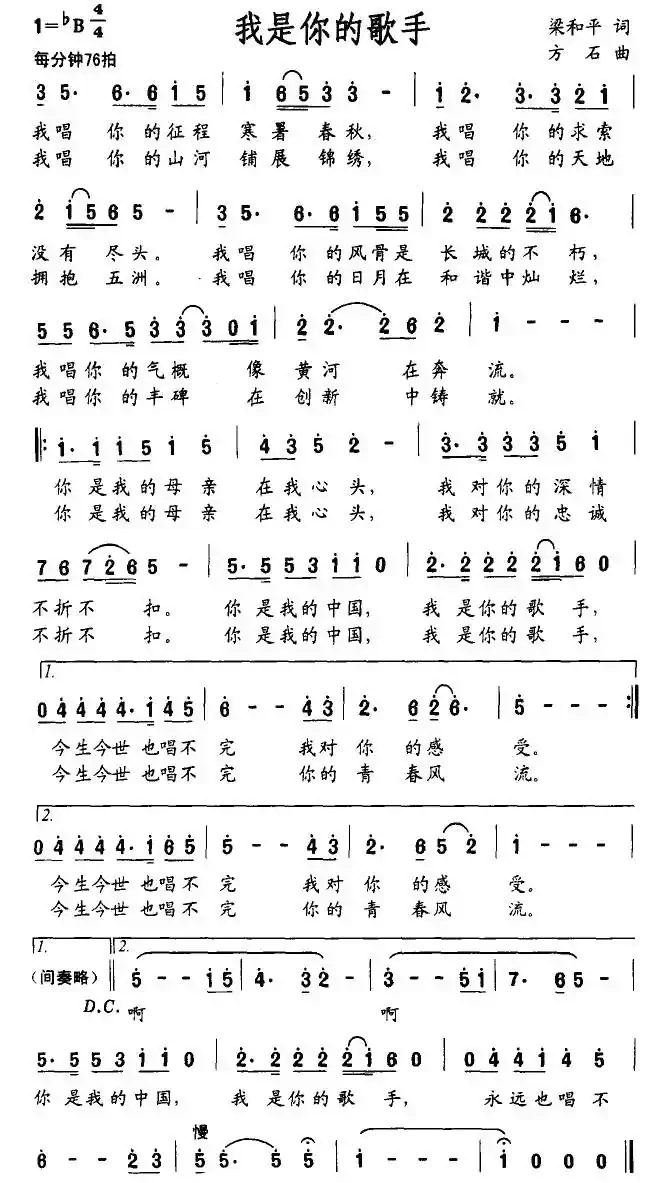 1=♭B 4/4
我是你的歌手
梁和平 词
方 石 曲
每分钟76拍
3 5· 6·6 1 5 | 1 6 5 3 3 - | 1 2· 3·3 2 1
我唱 你 的征程 寒暑 春秋， 我唱 你 的求索
我唱 你 的山河 铺展 锦绣， 我唱 你 的天地
2 1 5 6 5 - | 3 5· 6·6 1 5 5 | 2 2 2 2 1 6·
没有 尽头。 我唱 你 的风骨是 长 城的不 朽，
拥抱 五洲。 我唱 你 的日月在 和 谐中灿 烂，
5 5 6·5 3 3 3 0 1 | 2 2· 2 6 2 | 1 - - -
我唱你 的气概 像 黄河 在奔 流。
我唱你 的丰碑 在 创新 中铸 就。
1·1 1 5 1 5 | 4 3 5 2 - | 3·3 3 3 5 1
你 是我的母 亲 在我心 头， 我 对你的深 情
你 是我的母 亲 在我心 头， 我 对你的忠 诚
7 6 7 2 6 5 - | 5·5 5 3 1 1 0 | 2·2 2 2 2 1 6 0
不折不 扣。 你 是我的中国， 我 是你的歌 手，
不折不 扣。 你 是我的中国， 我 是你的歌 手，
1.
0 4 4 4 4·1 4 5 | 6 - - 4 3 | 2· 6 2 6· | 5 - - :|
今生今世 也唱不 完 我对 你 的感 受。
今生今世 也唱不 完 你的 青 春风 流。
2.
0 4 4 4 4·1 6 5 | 5 - - 4 3 | 2· 6 5 2 | 1 - - -
今生今世 也唱不 完 我对 你 的感 受。
今生今世 也唱不 完 你的 青 春风 流。
1. 2.
（间奏略） 5 - - 1 5 | 4· 3 2 | 3 - - 5 1 | 7· 6 5 -
D.C. 啊 啊
5·5 5 3 1 1 0 | 2·2 2 2 2 1 6 0 | 0 4 4 1 4 5
你 是我的中国， 我 是你的歌 手， 永远也唱 不
慢
6 - - 2 3 | 5 5· 5 5 | 1 - - - | 1 0 0 0